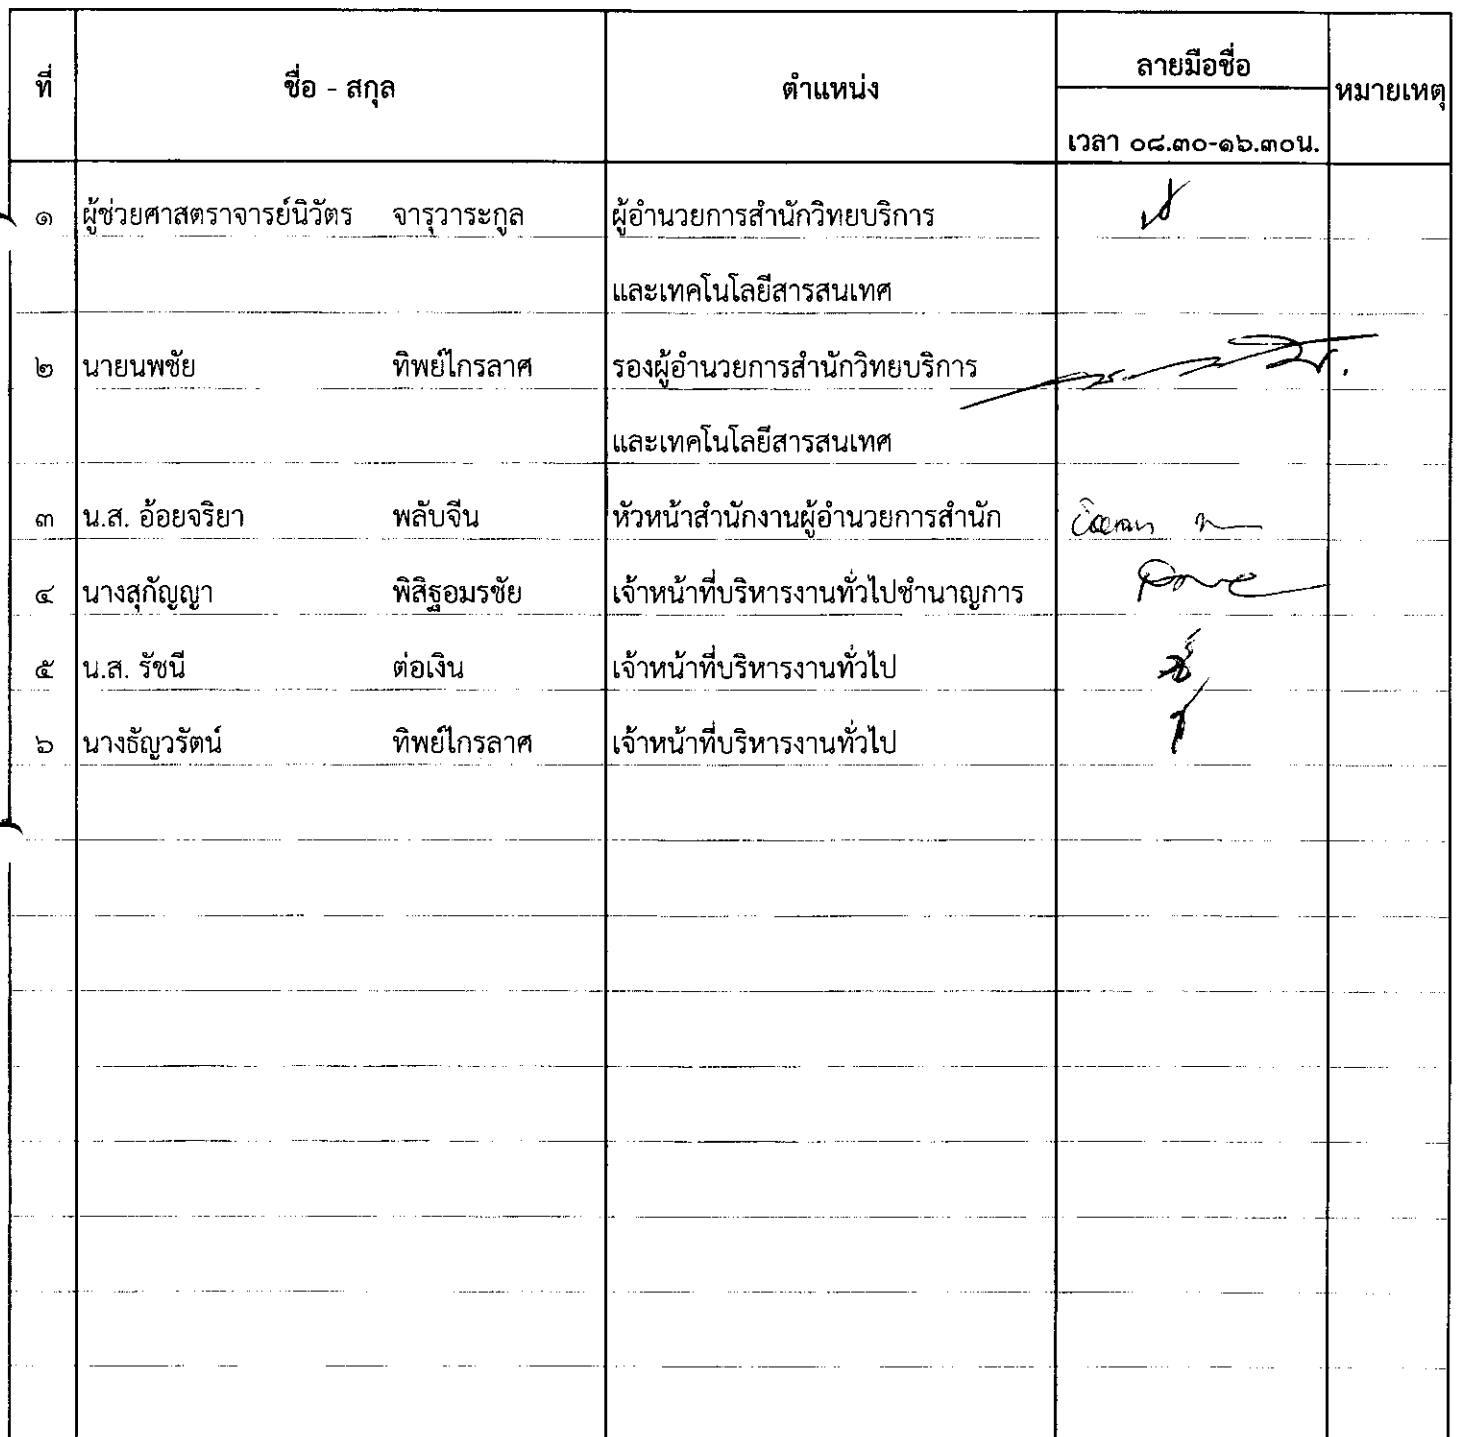 ที่ ชื่อ - สกุล ตำแหน่ง ลายมือชื่อ หมายเหตุ
เวลา ๐๘.๓๐-๑๖.๓๐น.
๑ ผู้ช่วยศาสตราจารย์นิวัตร จารุวาระกูล ผู้อำนวยการสำนักวิทยบริการ
และเทคโนโลยีสารสนเทศ
๒ นายนพชัย ทิพย์ไกรลาศ รองผู้อำนวยการสำนักวิทยบริการ
และเทคโนโลยีสารสนเทศ
๓ น.ส. อ้อยจริยา พลับจีน หัวหน้าสำนักงานผู้อำนวยการสำนัก
๔ นางสุกัญญา พิสิฐอมรชัย เจ้าหน้าที่บริหารงานทั่วไปชำนาญการ
๕ น.ส. รัชนี ต่อเงิน เจ้าหน้าที่บริหารงานทั่วไป
๖ นางธัญวรัตน์ ทิพย์ไกรลาศ เจ้าหน้าที่บริหารงานทั่วไป